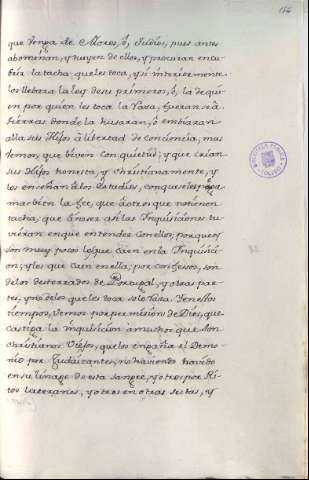 que tenga de Moros, ô, Judios, pues antes
abominan, y huyen de ellos, y procuran encu-
brir la tacha que les toca, y si interiormente
los llebara la ley de su primeros, ô, la de qui-
en por quien les toca la Raza, fueranse â
tierras donde la husaran, ô embiaran
alla sus Hijos â libertad de conciencia, mas
vemos, que biven con quietud, y que crian
sus Hijos honesta, y christianamente, y
los enseñan
la fee, que
tacha, que las Inquisiciones tu-
vieran en que entender con ellos, porque
son muy pocos los que caen en la Inquisici-
on, y los que caen en ella, por confesos, son
de los desterrados de Portugal, y otras par-
tes, y no de los que les toca solo Raza. Y en estos
tiempos, vemos por permision de Dios, que
castiga la inquisicion a muchos que son
christianos Viejos, que los engaña el Demo-
nio por Judaizantes, no haviendo havido
en su linage de esta sangre, y otros por Ri-
tos luteranos, y otros en otras sectas, y